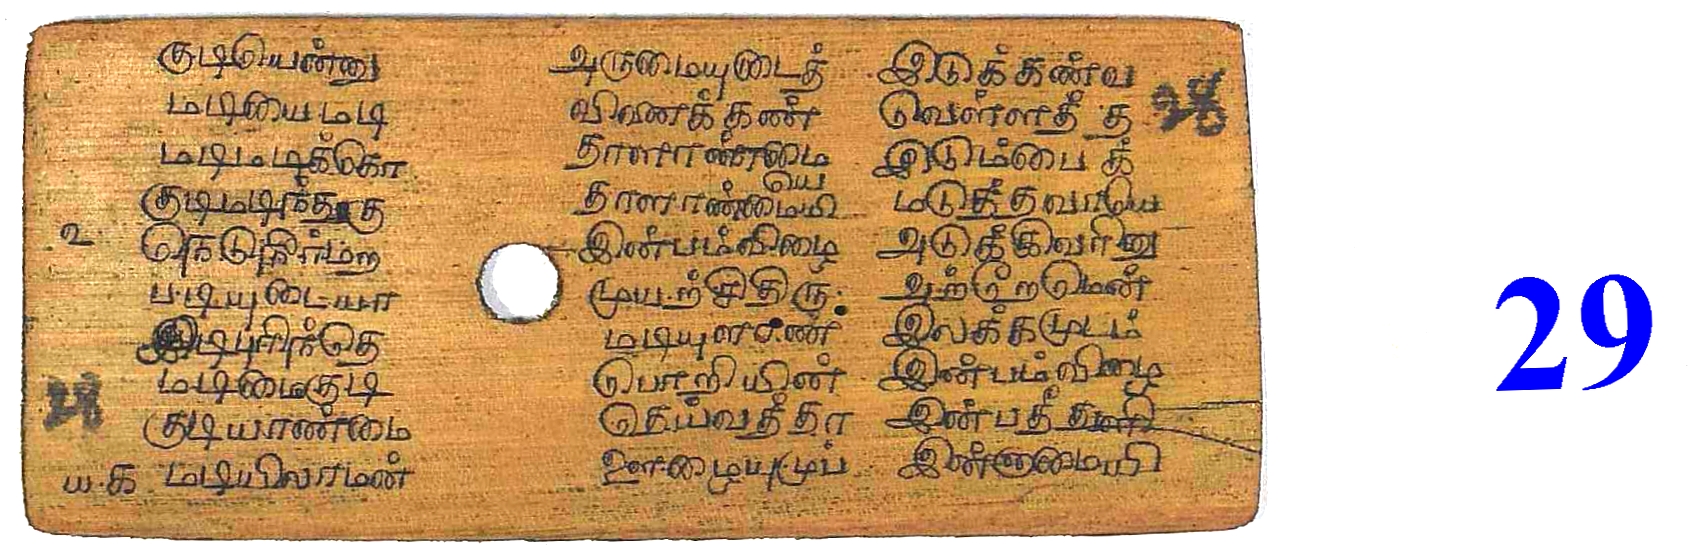 குடியென்னு
மடியைமடி
மடிமடிக்கொ
குடிமடிந்துகு
௨
நெடுநீர்மற
படியுடையா
இடிபுரிந்தெ
28
மடிமைகுடி
குடியாண்மை
ய.க மடியிலாமன்
அருமையுடைத்
வினைக்கண்
தாளாண்மை
யெ
தாளாண்மையி
இன்பம்விழை
முயற்சிதிரு
மடியுளாண்
பொறியின்
தெய்வத்தா
ஊழையுமுப்
இடுக்கண்வ
வெள்ளத்த
28
இடும்பைக்
மடுத்தவாயெ
அடுக்கிவரினு
அற்றேமென்
இலக்கமுடம்
இன்பம்விழை
இன்பத்துளி
இன்னாமையி
29